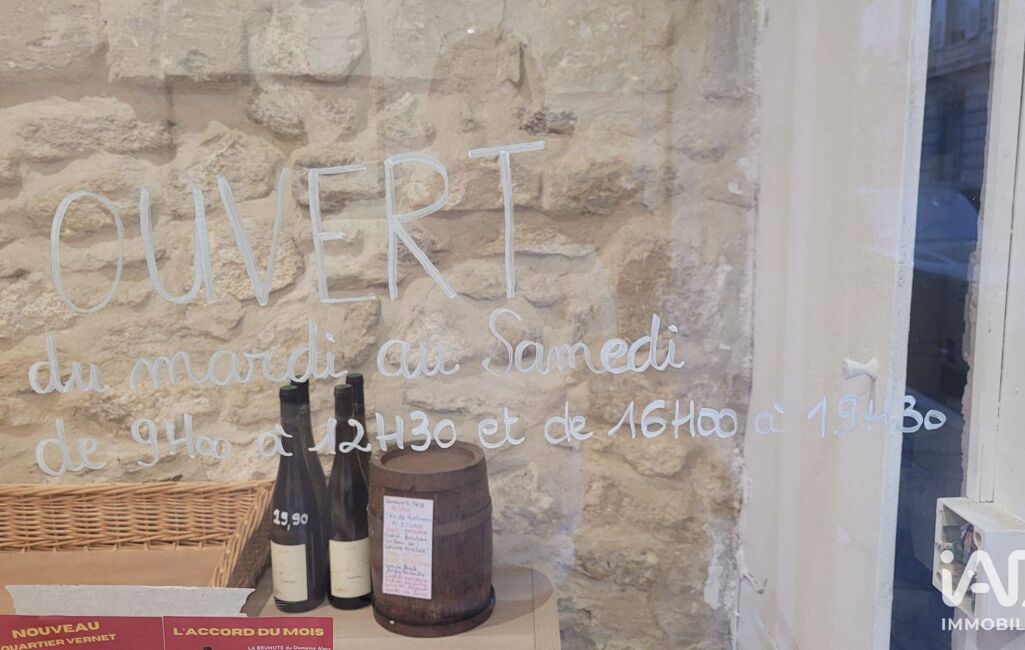 OUVERT
du mardi au Samedi
de 9H00 à 12H30 et de 16H00 à 19H30
19,90
NOUVEAU
QUARTIER VERNET
L'ACCORD DU MOIS
LA BRUNOTE du Domaine Alary
iA
IMMOBIL